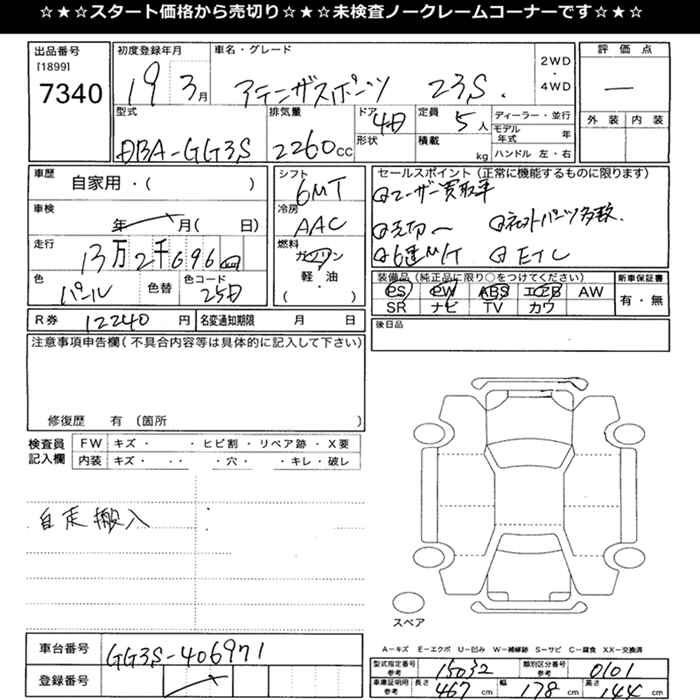 ☆★☆スタート価格から売切り☆★☆未検査ノークレームコーナーです☆★☆
出品番号
[1899]
7340
初度登録年月
19 3月
車名・グレード
アテンザスポーツ 23S
2WD
・
4WD
評価点
―
外装 内装
型式
DBA-GG3S
排気量
2260CC
ドア 4D
形状
定員 5人
積載 kg
ディーラー・並行
モデル年式 年
ハンドル 左・右
車歴
自家用・( )
車検
年 月( 日)
走行
13万2千696km
色
パール
色替
色コード
25D
シフト
6MT
冷房
AAC
燃料
ガソリン
軽・油
( ・ )
セールスポイント(正常に機能するものに限ります)
◎ユーザー買取車
◎売切〜 ◎ネットパーツ多数.
◎6速MT ◎ETC
装備品(純正品に限り○をつけてください)
PS PW ABS エアB AW
SR ナビ TV カワ
新車保証書
有・無
R券 12240円
名変通知期限 月 日
後日品
注意事項申告欄(不具合内容等は具体的に記入して下さい)
修復歴 有 (箇所 )
検査員
記入欄
FW キズ・ ・ヒビ割・リペア跡・X要
内装 キズ・ ・ ・穴・ ・キレ・破レ
自走搬入
スペア
A―キズ E―エクボ U―凹み W―補修跡 S―サビ C―腐食 XX―交換済
車台番号
GG3S-406971
登録番号
型式指定番号
参考
15032
類別区分番号
参考
0101
車庫証明用
参考
長さ 467cm 幅 178cm 高さ 144cm